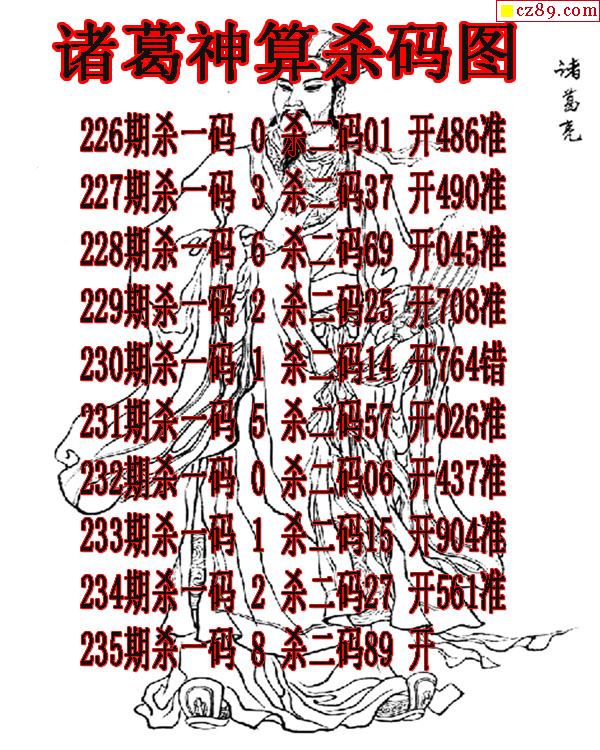 cz89.com
诸葛神算杀码图
诸葛亮
226期杀一码 0 杀二码01 开486准
227期杀一码 3 杀二码37 开490准
228期杀一码 6 杀二码69 开045准
229期杀一码 2 杀二码25 开708准
230期杀一码 1 杀二码14 开764错
231期杀一码 5 杀二码57 开026准
232期杀一码 0 杀二码06 开437准
233期杀一码 1 杀二码15 开904准
234期杀一码 2 杀二码27 开561准
235期杀一码 8 杀二码89 开